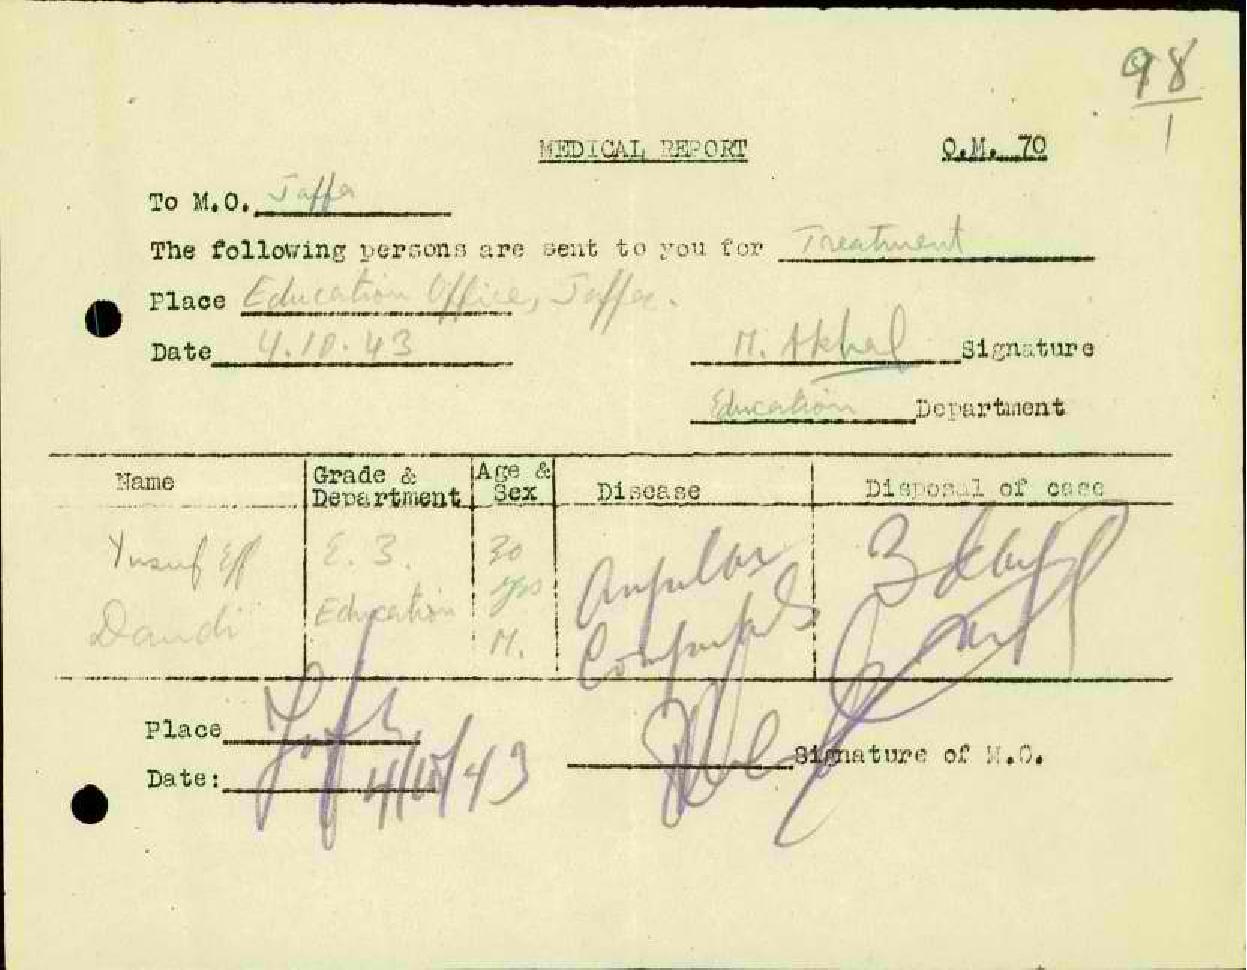 98
1
MEDICAL REPORT O.M. 70
To M.O. Jaffa
The following persons are sent to you for Treatment
Place Education Office, Jaffa.
Date 4.10.43 M. Akhal Signature
Education Department
Name Grade & Department Age & Sex Disease Disposal of case
Yusuf Eff E. 3. 30
Education yrs
Daudi M.
3 days
Place
Date: 4/10/43 Signature of M.O.